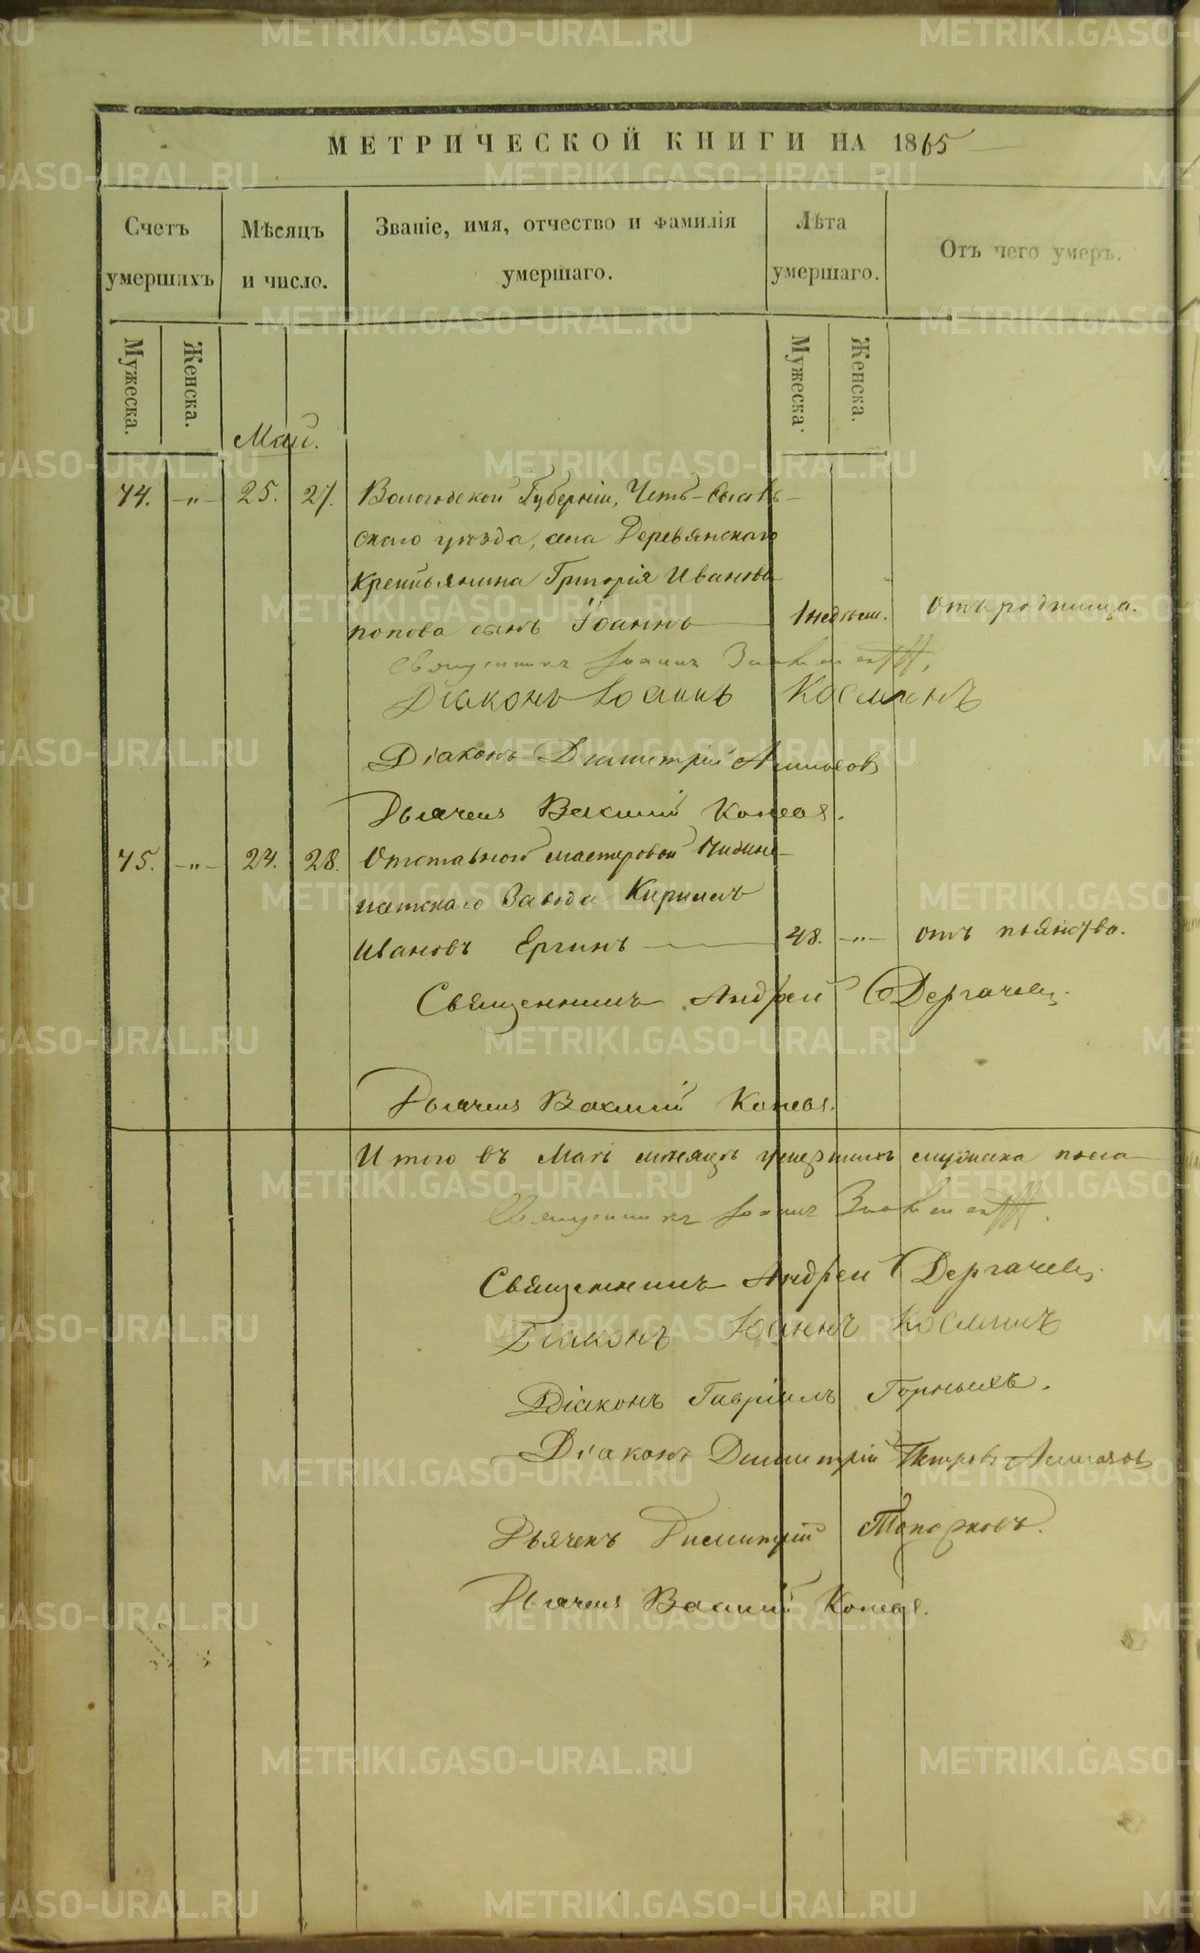 МЕТРИЧЕСКОЙ КНИГИ НА 1865
Счетъ умершихъ
Мѣсяцъ и число.
Званіе, имя, отчество и фамилія умершаго.
Лѣта умершаго.
Отъ чего умеръ.
Мужеска.
Женска.
Мужеска
Женска.
Май.
74. -„- 25. 27. Вологодской Губерніи, Усть-Сысоль-
скаго уѣзда, села Деревянскаго
крестьянина Григорія Иванова
попова сынъ Іоаннъ 1 недѣли. Отъ родимца.
Священникъ Іоаннъ
Діаконъ Іоаннъ Косминъ
Діаконъ Димитрій
Дьячекъ Василий Конева.
75. -„- 24. 28. Отставной мастеровой Нижне-
исетскаго Завода Кириллъ
Ивановъ Ергинъ 48. -„- отъ пьянства.
Священникъ Андрей Дергачевъ
Дьячекъ Василий Конева.
Итого въ Маѣ мѣсяцѣ умершихъ мужеска пола
Священникъ Іоаннъ
Священникъ Андрей Дергачевъ
Діаконъ Іоаннъ Косминъ
Діаконъ Гавріилъ Горныхъ.
Діаконъ Димитрій Петровъ
Дьячекъ Димитрій Топорковъ.
Дьячекъ Василий Конева.
METRIKI.GASO-URAL.RU